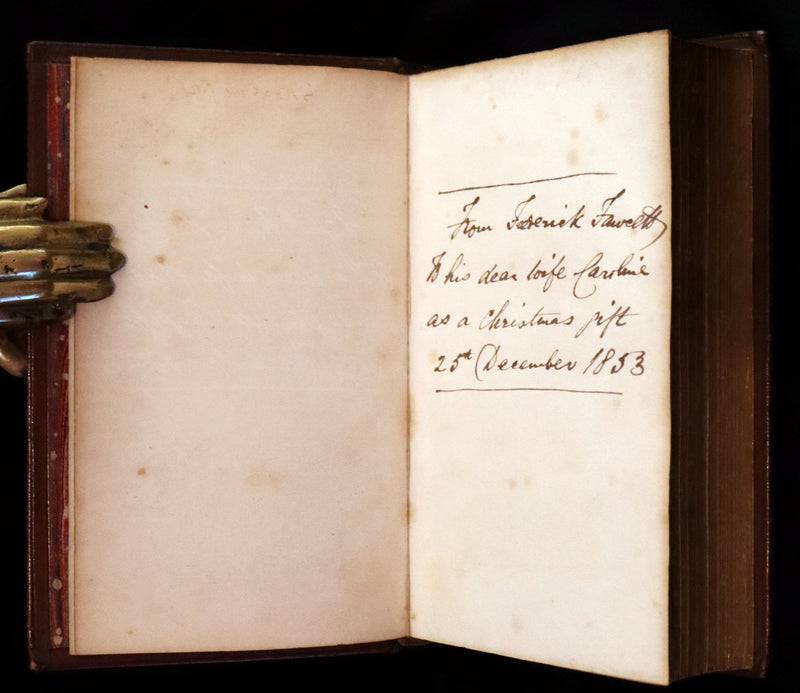 From Frederick Fawcett
To his dear wife Caroline
as a Christmas gift
25th December 1853